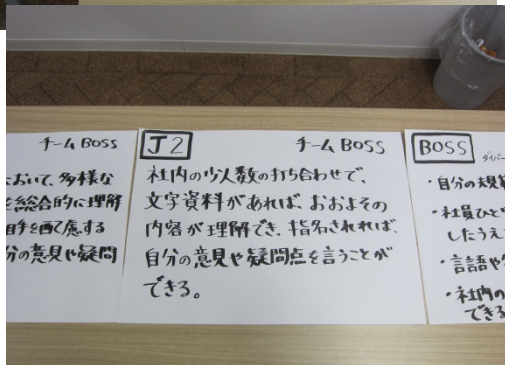 チーム BOSS
おいて、多様な
総合的に理解
自分の意見や疑問
J2
チーム BOSS
社内の少人数の打ち合わせで、
文字資料があれば、おおよその
内容が理解でき、指名されれば、
自分の意見や疑問点を言うことが
できる。
BOSS
・自分の
・社員ひと
したうえ
・言語や
・社内の
できる